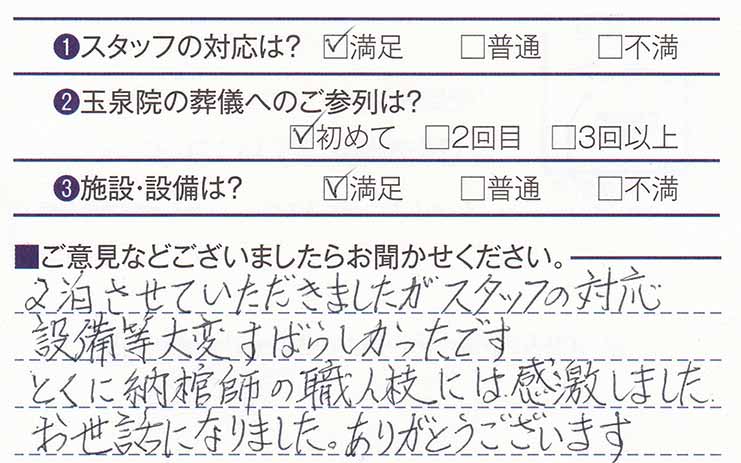 ❶スタッフの対応は? ☑満足 □普通 □不満
❷玉泉院の葬儀へのご参列は?
☑初めて □2回目 □3回以上
❸施設・設備は? ☑満足 □普通 □不満
■ご意見などございましたらお聞かせください。
2泊させていただきましたがスタッフの対応
設備等大変すばらしかったです
とくに納棺師の職人技には感激しました
お世話になりました。ありがとうございます